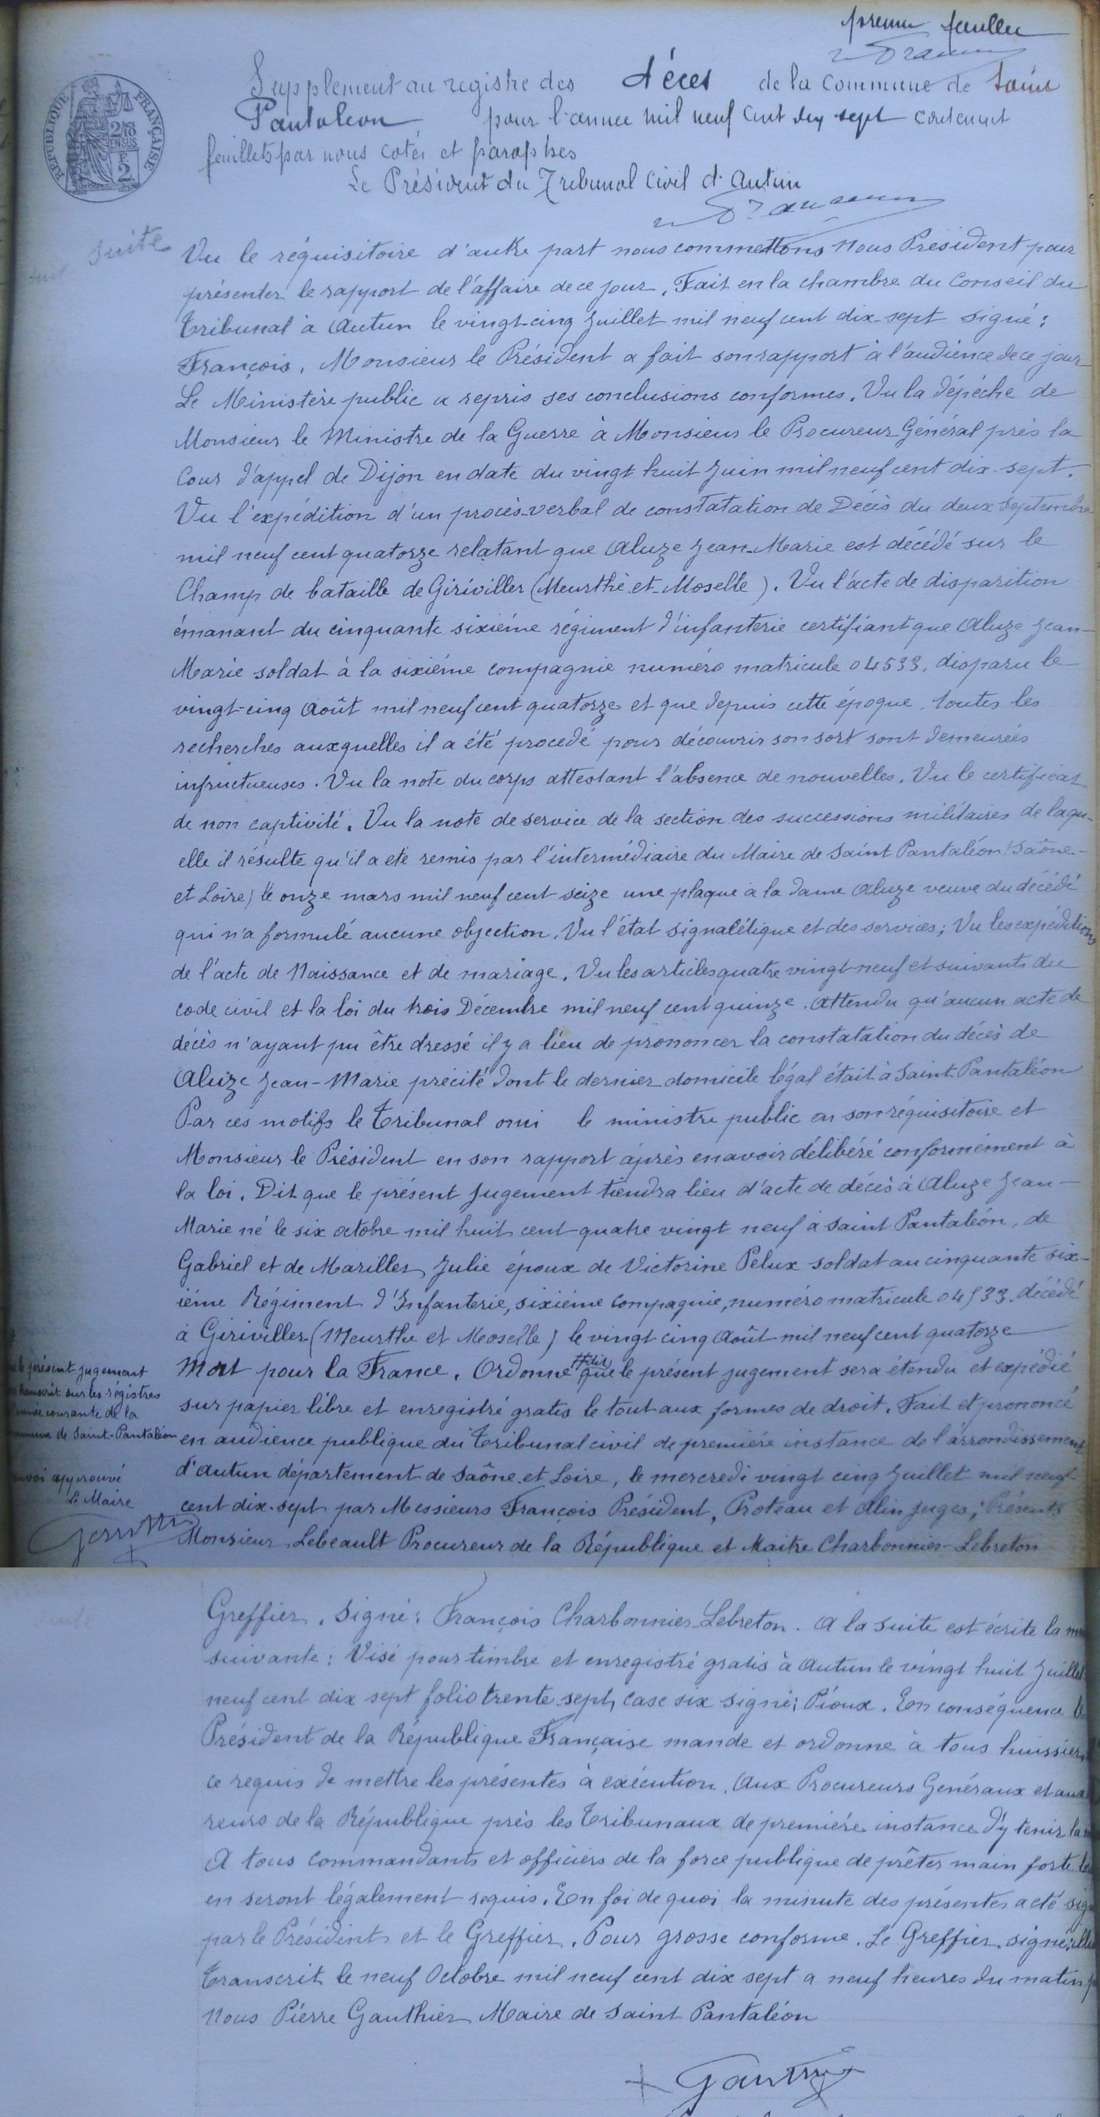 premier feuillet
Supplement au registre des décès de la Commune de Saint
Pantaléon pour l'année mil neuf cent dix sept contenant
feuillets par nous cotés et paraphés
Le Président du Tribunal Civil d'Autun
RÉPUBLIQUE FRANÇAISE
suite
Vu le réquisitoire d'autre part nous commettons Nous Président pour
présenter le rapport de l'affaire de ce jour. Fait en la chambre du Conseil du
Tribunal à Autun le vingt-cinq Juillet mil neuf cent dix-sept signé :
François. Monsieur le Président a fait son rapport à l'audience de ce jour
Le Ministère public a repris ses conclusions conformes. Vu la dépêche de
Monsieur le Ministre de la Guerre à Monsieur le Procureur Général près la
Cour d'appel de Dijon en date du vingt huit Juin mil neuf cent dix-sept.
Vu l'expédition d'un procès-verbal de constatation de Décès du deux Septembre
mil neuf cent quatorze relatant que Aluze Jean-Marie est décédé sur le
Champ de bataille de Giriviller (Meurthe-et-Moselle). Vu l'acte de disparition
émanant du cinquante sixième régiment d'infanterie certifiant que Aluze Jean-
Marie soldat à la sixième compagnie numéro matricule 04533, disparu le
vingt-cinq Août mil neuf cent quatorze et que depuis cette époque, toutes les
recherches auxquelles il a été procédé pour découvrir son sort sont demeurées
infructueuses. Vu la note du corps attestant l'absence de nouvelles. Vu le certificat
de non captivité. Vu la note de service de la section des successions militaires de laqu-
elle il résulte qu'il a été remis par l'intermédiaire du Maire de Saint Pantaléon (Saône-
et Loire) le onze mars mil neuf cent seize une plaque à la dame Aluze veuve du décédé
qui n'a formulé aucune objection. Vu l'état signalétique et des services ; Vu les expéditions
de l'acte de Naissance et de mariage. Vu les articles quatre vingt neuf et suivants du
code civil et la loi du trois Décembre mil neuf cent quinze. Attendu qu'aucun acte de
décès n'ayant pu être dressé il y a lieu de prononcer la constatation du décès de
Aluze Jean-Marie précité dont le dernier domicile légal était à Saint Pantaléon
Par ces motifs le Tribunal oui le ministre public en son réquisitoire et
Monsieur le Président en son rapport après en avoir délibéré conformément à
la loi. Dit que le présent Jugement tiendra lieu d'acte de décès à Aluze Jean-
Marie né le six octobre mil huit cent-quatre vingt neuf à Saint Pantaléon, de
Gabriel et de Marillier Julie époux de Victorine Pelux soldat au cinquante six-
ième Régiment d'Infanterie, sixième Compagnie, numéro matricule 04533 décédé
à Giriviller (Meurthe et Moselle) le vingt cinq Août mil neuf cent quatorze
Mort pour la France. Ordonne que le présent jugement sera étendu et expédié
sur papier libre et enregistré gratis le tout aux formes de droit. Fait et prononcé
en audience publique du Tribunal civil de première instance de l'arrondissement
d'Autun département de Saône et Loire, le mercredi vingt cinq Juillet mil neuf-
cent dix-sept par Messieurs François Président, Proteau et Alin juges ; Présents
Monsieur Lebeault Procureur de la République et Maitre Charbonnier-Lebreton
le présent jugement
transcrit sur les registres
courante de la
commune de Saint-Pantaléon
approuvé
Le Maire
Greffier. Signé : François Charbonnier Lebreton. A la suite est écrite la
suivante : Visé pour timbre et enregistré gratis à Autun le vingt huit Juillet
neuf cent dix sept folio trente sept, case six signé : Pioux. En conséquence le
Président de la République Française mande et ordonne à tous huissiers
ce requis de mettre les présentes à exécution. Aux Procureurs Généraux et aux
reurs de la République près les Tribunaux de première instance d'y tenir la
A tous commandants et officiers de la force publique de prêter main forte
en seront légalement requis. En foi de quoi la minute des présentes a été
par le Président et le Greffier. Pour grosse conforme. Le Greffier, signé
Transcrit le neuf Octobre mil neuf cent dix sept a neuf heures du matin
Nous Pierre Gauthier Maire de Saint Pantaléon
Gauthier